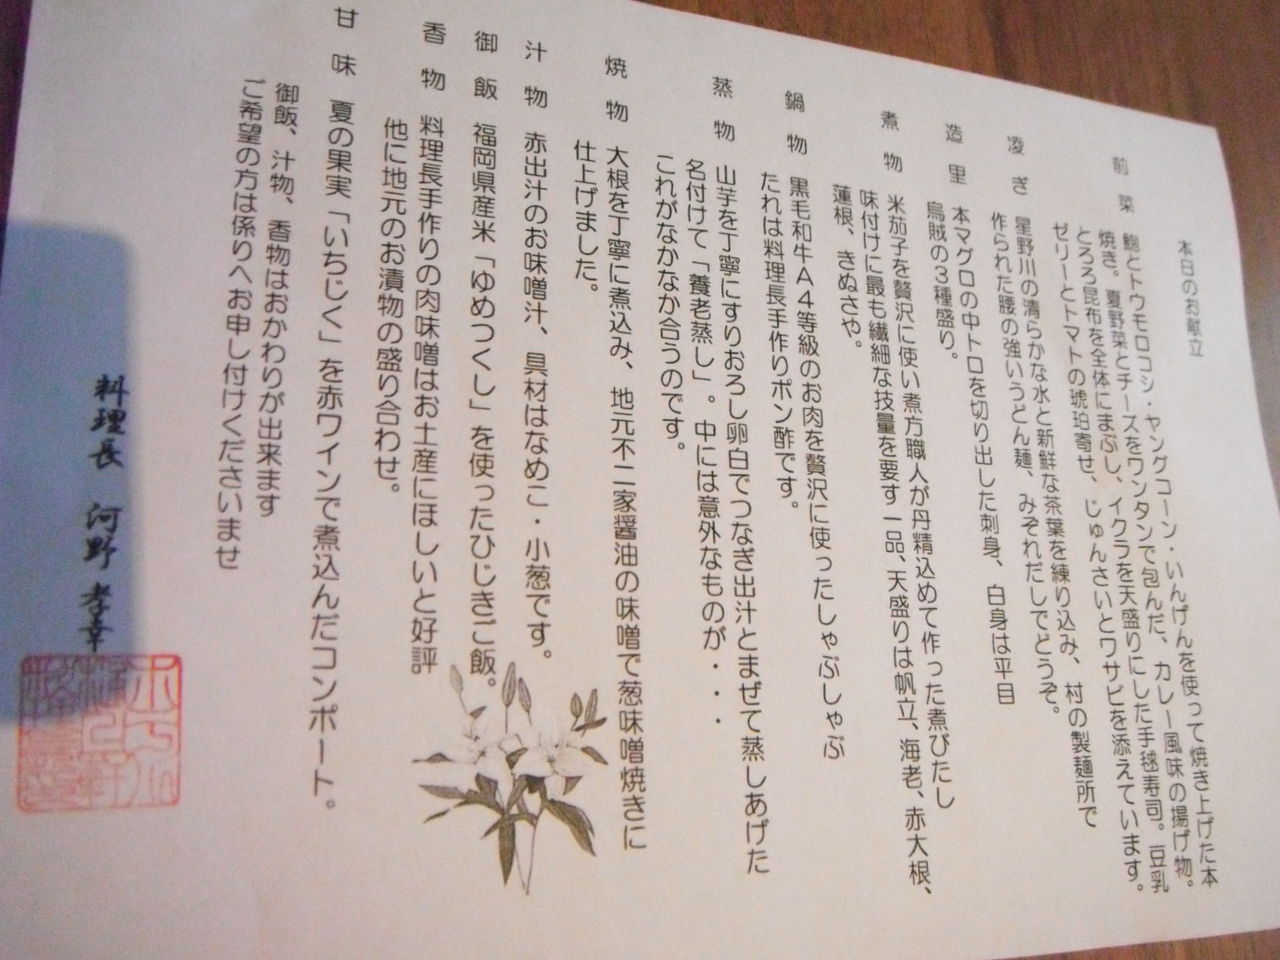 本日のお献立
前菜 鮑とトウモロコシ・ヤングコーン・いんげんを使って焼き上げた本
焼き。夏野菜とチーズをワンタンで包んだ、カレー風味の揚げ物。
とろろ昆布を全体にまぶし、イクラを天盛りにした手毬寿司。豆乳
ゼリーとトマトの琥珀寄せ、じゅんさいとワサビを添えています。
凌ぎ 星野川の清らかな水と新鮮な茶葉を練り込み、村の製麺所で
作られた腰の強いうどん麺、みぞれだしでどうぞ。
造里 本マグロの中トロを切り出した刺身、白身は平目
烏賊の3種盛り。
煮物 米茄子を贅沢に使い煮方職人が丹精込めて作った煮びたし
味付けに最も繊細な技量を要す一品、天盛りは帆立、海老、赤大根、
蓮根、きぬさや。
鍋物 黒毛和牛A4等級のお肉を贅沢に使ったしゃぶしゃぶ
たれは料理長手作りポン酢です。
蒸物 山芋を丁寧にすりおろし卵白でつなぎ出汁とまぜて蒸しあげた
名付けて「養老蒸し」。中には意外なものが・・・
これがなかなか合うのです。
焼物 大根を丁寧に煮込み、地元不二家醤油の味噌で葱味噌焼きに
仕上げました。
汁物 赤出汁のお味噌汁、具材はなめこ・小葱です。
御飯 福岡県産米「ゆめつくし」を使ったひじきご飯。
香物 料理長手作りの肉味噌はお土産にほしいと好評
他に地元のお漬物の盛り合わせ。
甘味 夏の果実「いちじく」を赤ワインで煮込んだコンポート。
御飯、汁物、香物はおかわりが出来ます
ご希望の方は係りへお申し付けくださいませ
料理長 河野孝幸